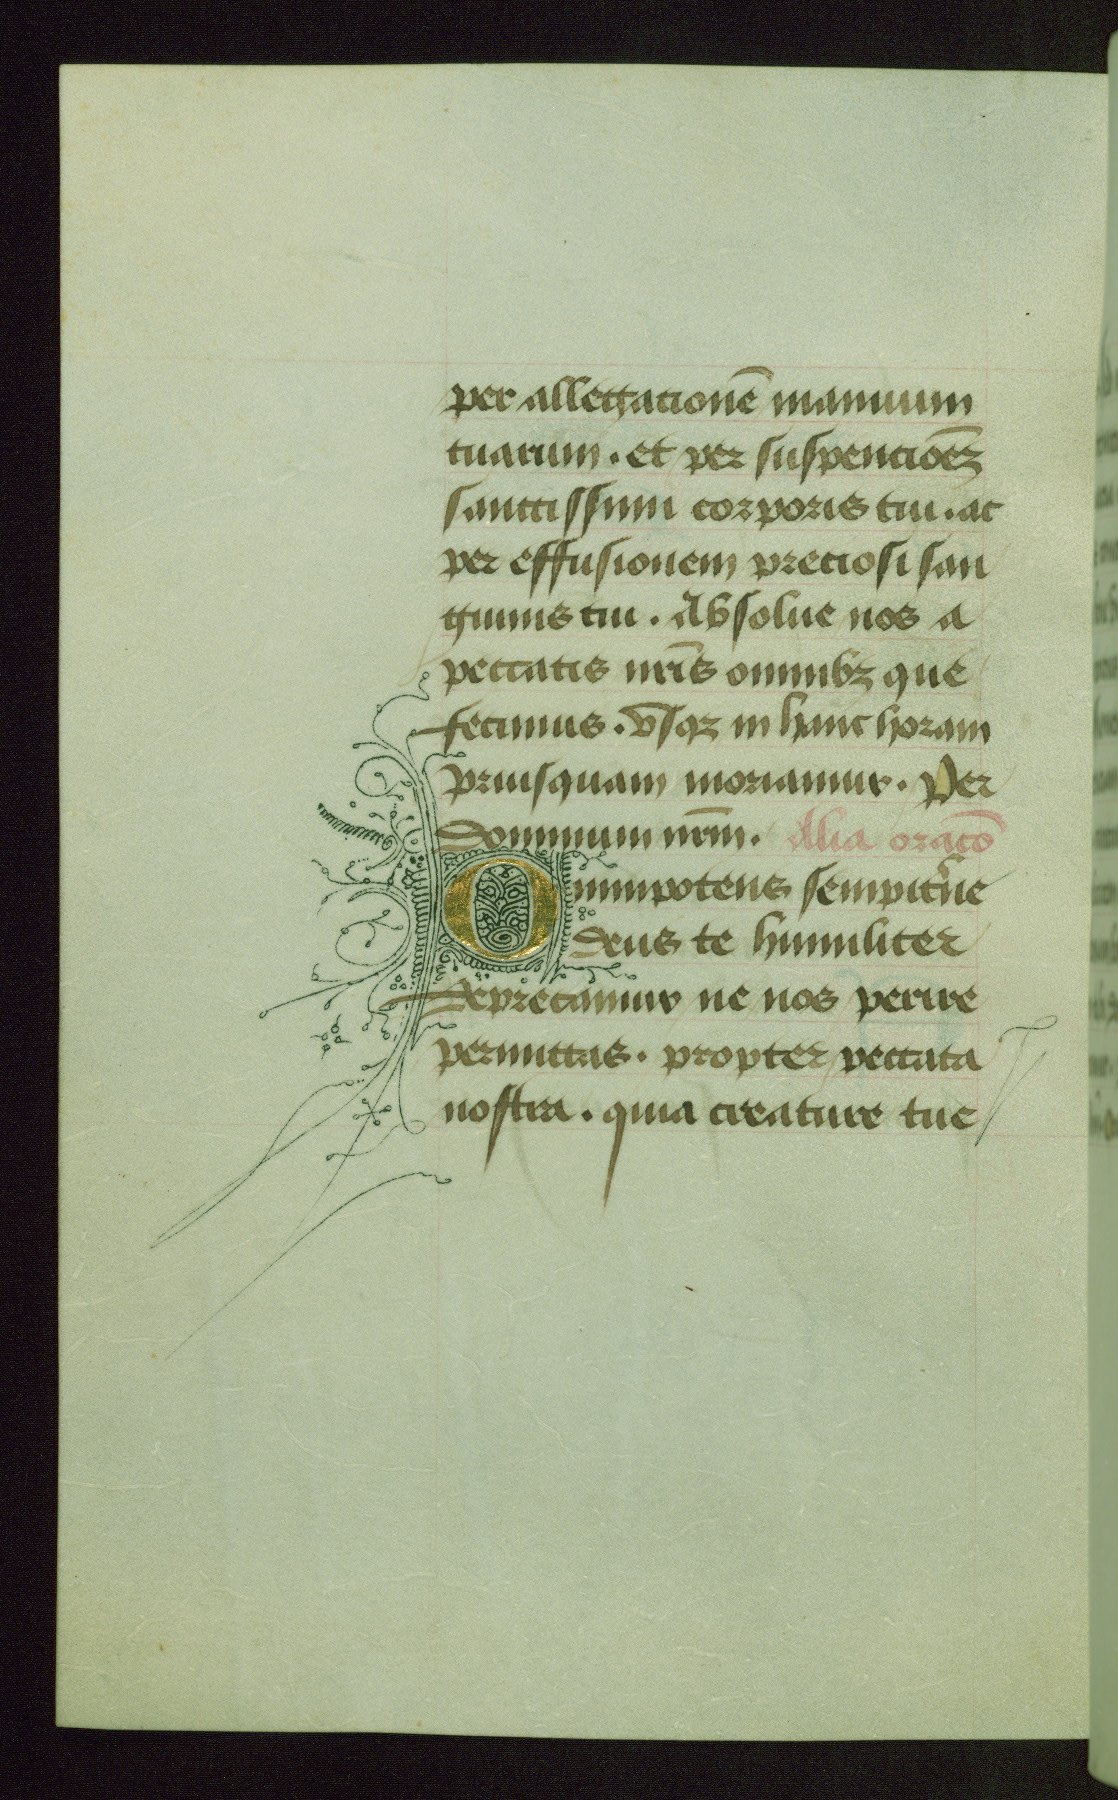 per allegacionē manuum
tuarum . et per suspencioēz
sanctissimi corporis tui . ac
per effusionem preciosi san
guinis tui . Absolue nos a
peccatis nr̄is omnibz que
fecimus . vsqz in hanc horam
priusquam moriamur . Per
dominum nr̄m . Alia oracō
Omnipotens sempit̾ne
deus te humiliter
deprecamur ne nos perire
permittas . propter peccata
nostra . quia creature tue